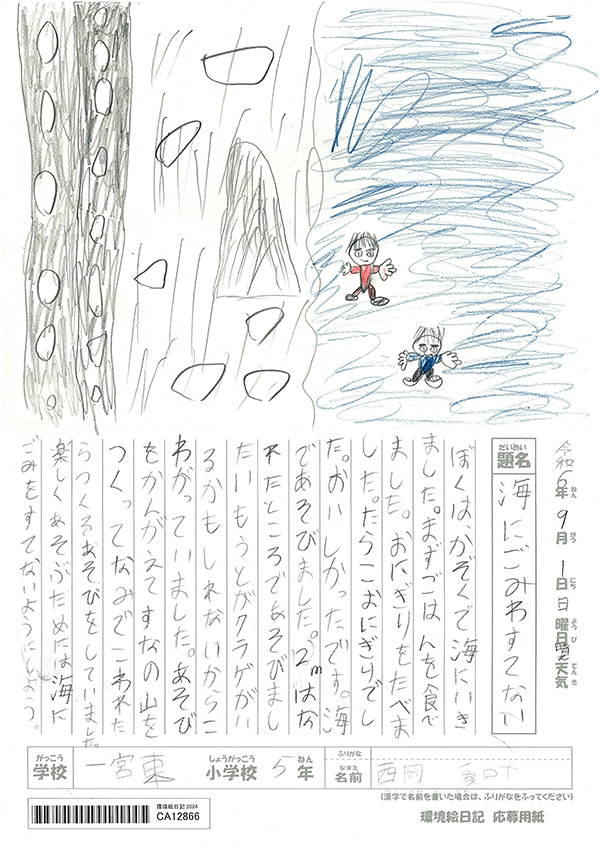 令和6年9月1日日曜日天気
ねん がつ にち ようび てんき
だいめい
題名 海にごみわすてない
ぼくは、かぞくで海にいき
ました。まずごはんを食べ
ました。おにぎりをたべま
した。たらこおにぎりでし
た。おいしかったです。海
であそびました。2mはな
れたところであそびまし
たいもうとがクラゲがい
るかもしれないからこ
わがっていました。あそび
をかんがえてすなの山を
つくってなみでこわれた
らつくるあそびをしていました。
楽しくあそぶためには海に
ごみをすてないようにしよう。
がっこう しょうがっこう ねん ふりがな
学校 一宮東 小学校 5年 なまえ 名前 西岡
(漢字で名前を書いた場合は、ふりがなをふってください)
環境絵日記 2024
CA12866
環境絵日記 応募用紙